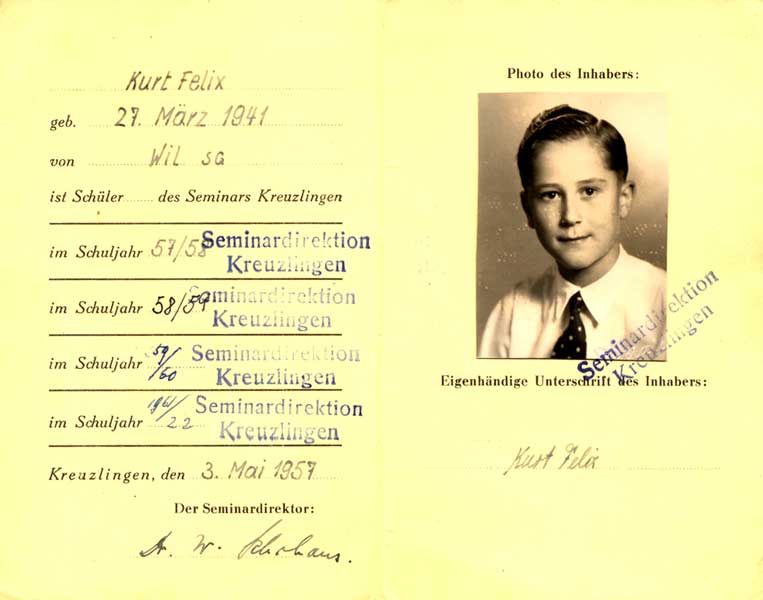 Kurt Felix
geb. 27. März 1941
von Wil SG
ist Schüler des Seminars Kreuzlingen
im Schuljahr 57/58 Seminardirektion
Kreuzlingen
im Schuljahr 58/59 Seminardirektion
Kreuzlingen
im Schuljahr 59/60 Seminardirektion
Kreuzlingen
im Schuljahr Seminardirektion
Kreuzlingen
Kreuzlingen, den 3. Mai 1957
Der Seminardirektor:
Dr. W. Schohaus.
Photo des Inhabers:
Seminardirektion
Kreuzlingen
Eigenhändige Unterschrift des Inhabers:
Kurt Felix